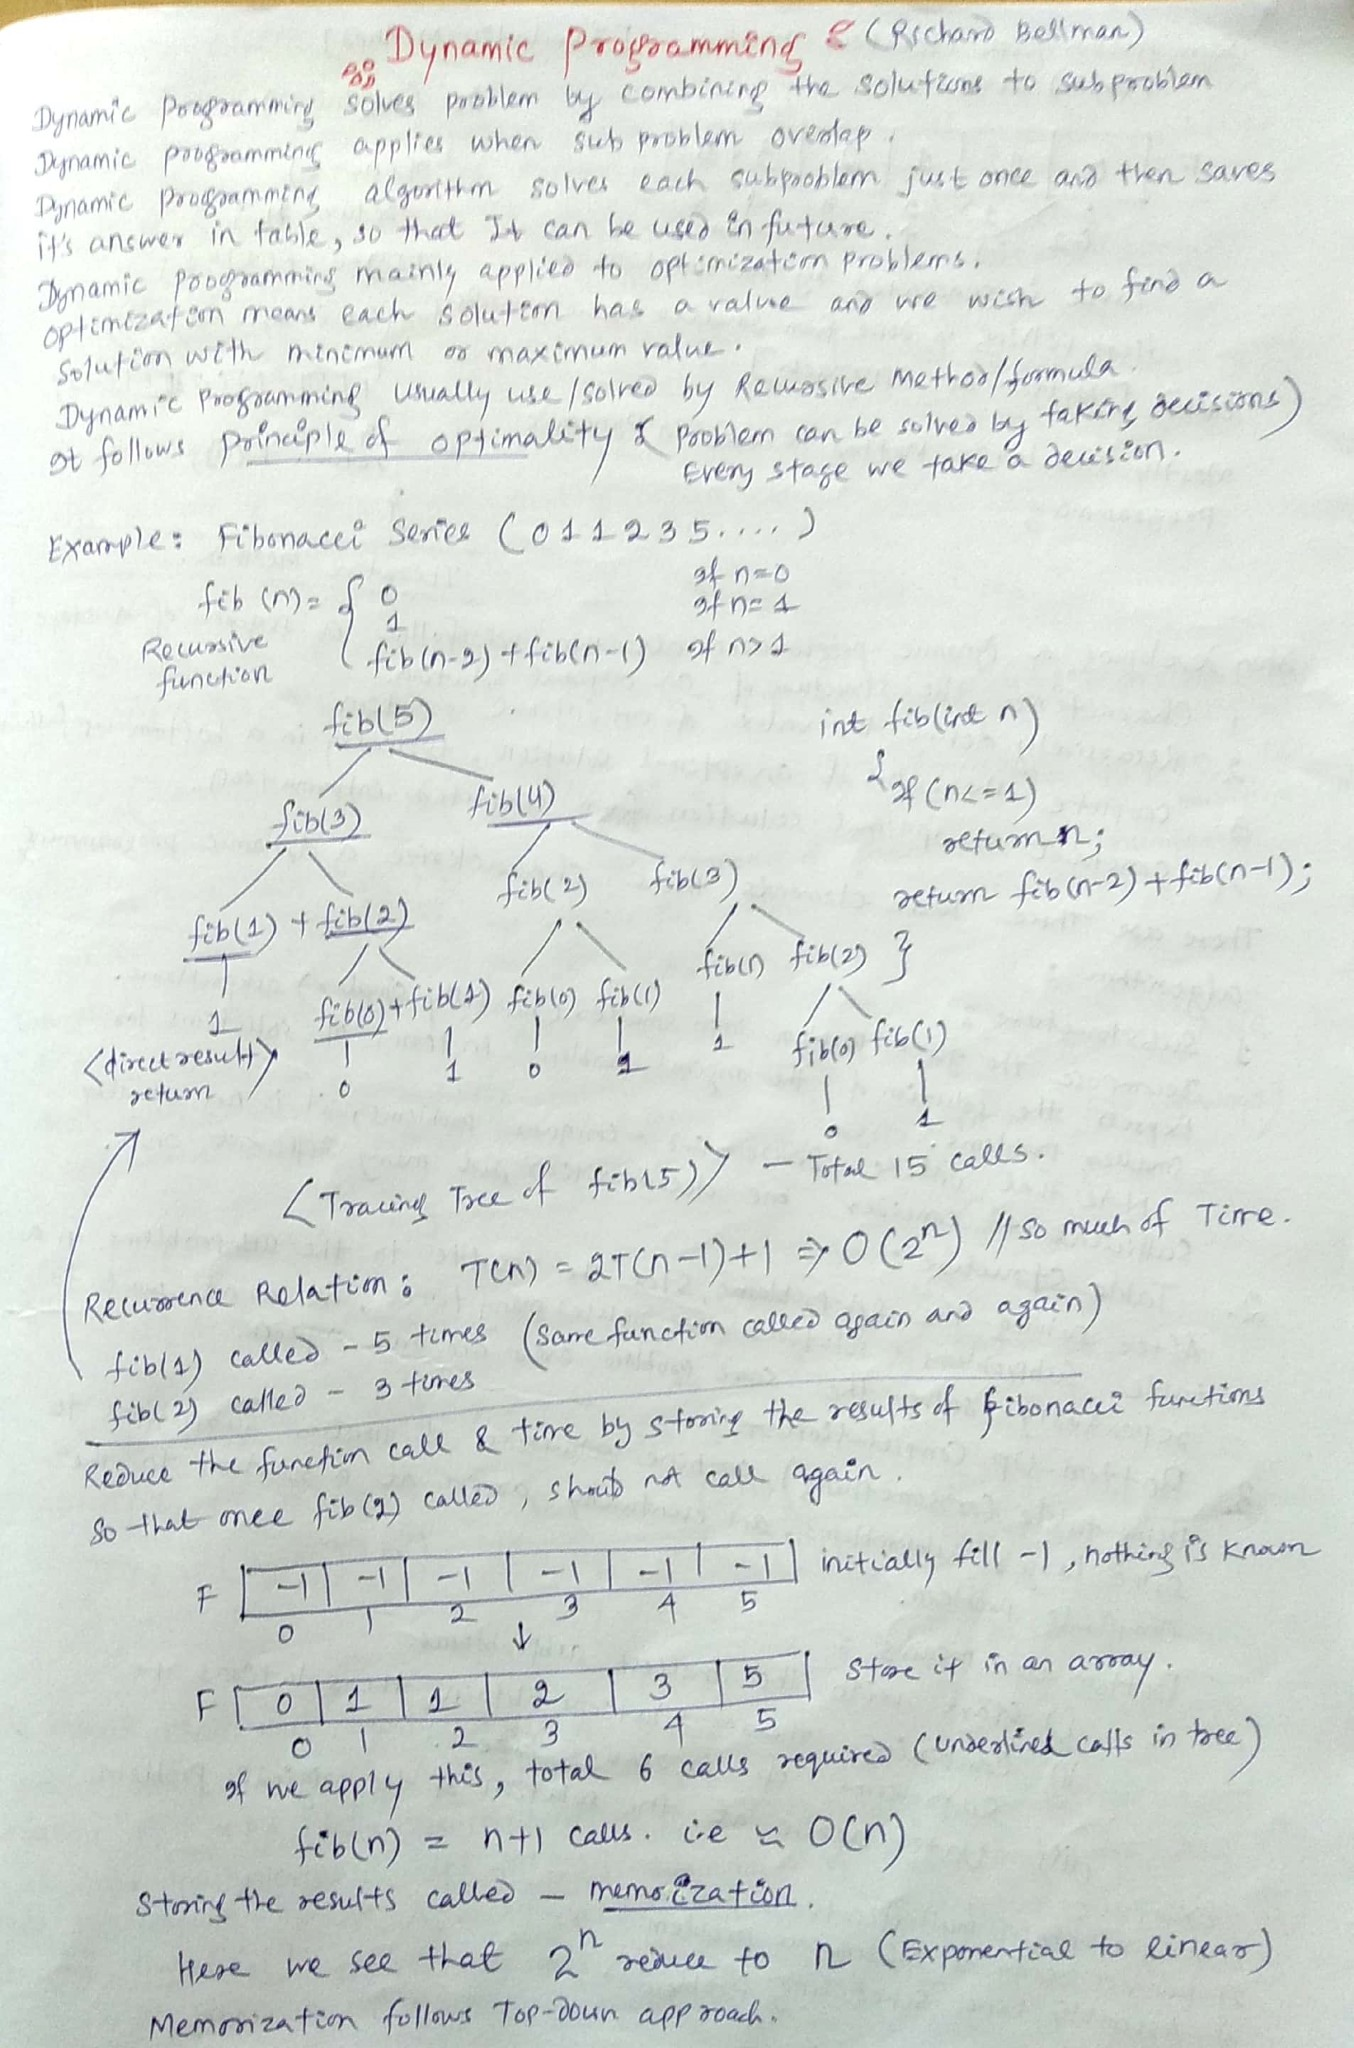 Dynamic Programming : (Richard Bellman)
Dynamic Programming solves problem by combining the solutions to subproblem
Dynamic programming applies when sub problem overlap.
Dynamic programming algorithm solves each subproblem just once and then saves
it's answer in table, so that It can be used in future.
Dynamic Programming mainly applied to optimization problems.
optimization means each solution has a value and we wish to find a
solution with minimum or maximum value.
Dynamic Programming usually use/solved by Recursive Method/formula.
It follows principle of optimality { Problem can be solved by taking decisions)
Every stage we take a decision.
Example: Fibonacci Series (0 1 1 2 3 5 ....)
fib (n) = { 0 If n=0
1 If n=1
fib(n-2) + fib(n-1) If n>1
Recursive
function
fib(5)
int fib(int n)
{
fib(3) fib(4)
If (n<=1)
return n;
fib(2) fib(3)
return fib(n-2) + fib(n-1);
fib(1) + fib(2)
fib(1) fib(2) }
fib(0) + fib(1) fib(0) fib(1)
1 0 1 0 1 1
fib(0) fib(1)
<direct result>
return
0 1
<Tracing Tree of fib(5)> - Total 15 calls.
Recurrence Relation: T(n) = 2T(n-1)+1 => O(2^n) // so much of Time.
fib(1) called - 5 times (same function called again and again)
fib(2) called - 3 times
Reduce the function call & time by storing the results of fibonacci functions
So that once fib(2) called, should not call again.
F -1 -1 -1 -1 -1 -1 initially fill -1, nothing is known
0 1 2 3 4 5
↓
F 0 1 1 2 3 5 Store it in an array.
0 1 2 3 4 5
If we apply this, total 6 calls required (underlined calls in tree)
fib(n) = n+1 calls. i.e ≈ O(n)
Storing the results called - memoization.
Here we see that 2^n reduce to n (Exponential to linear)
Memorization follows Top-Down approach.